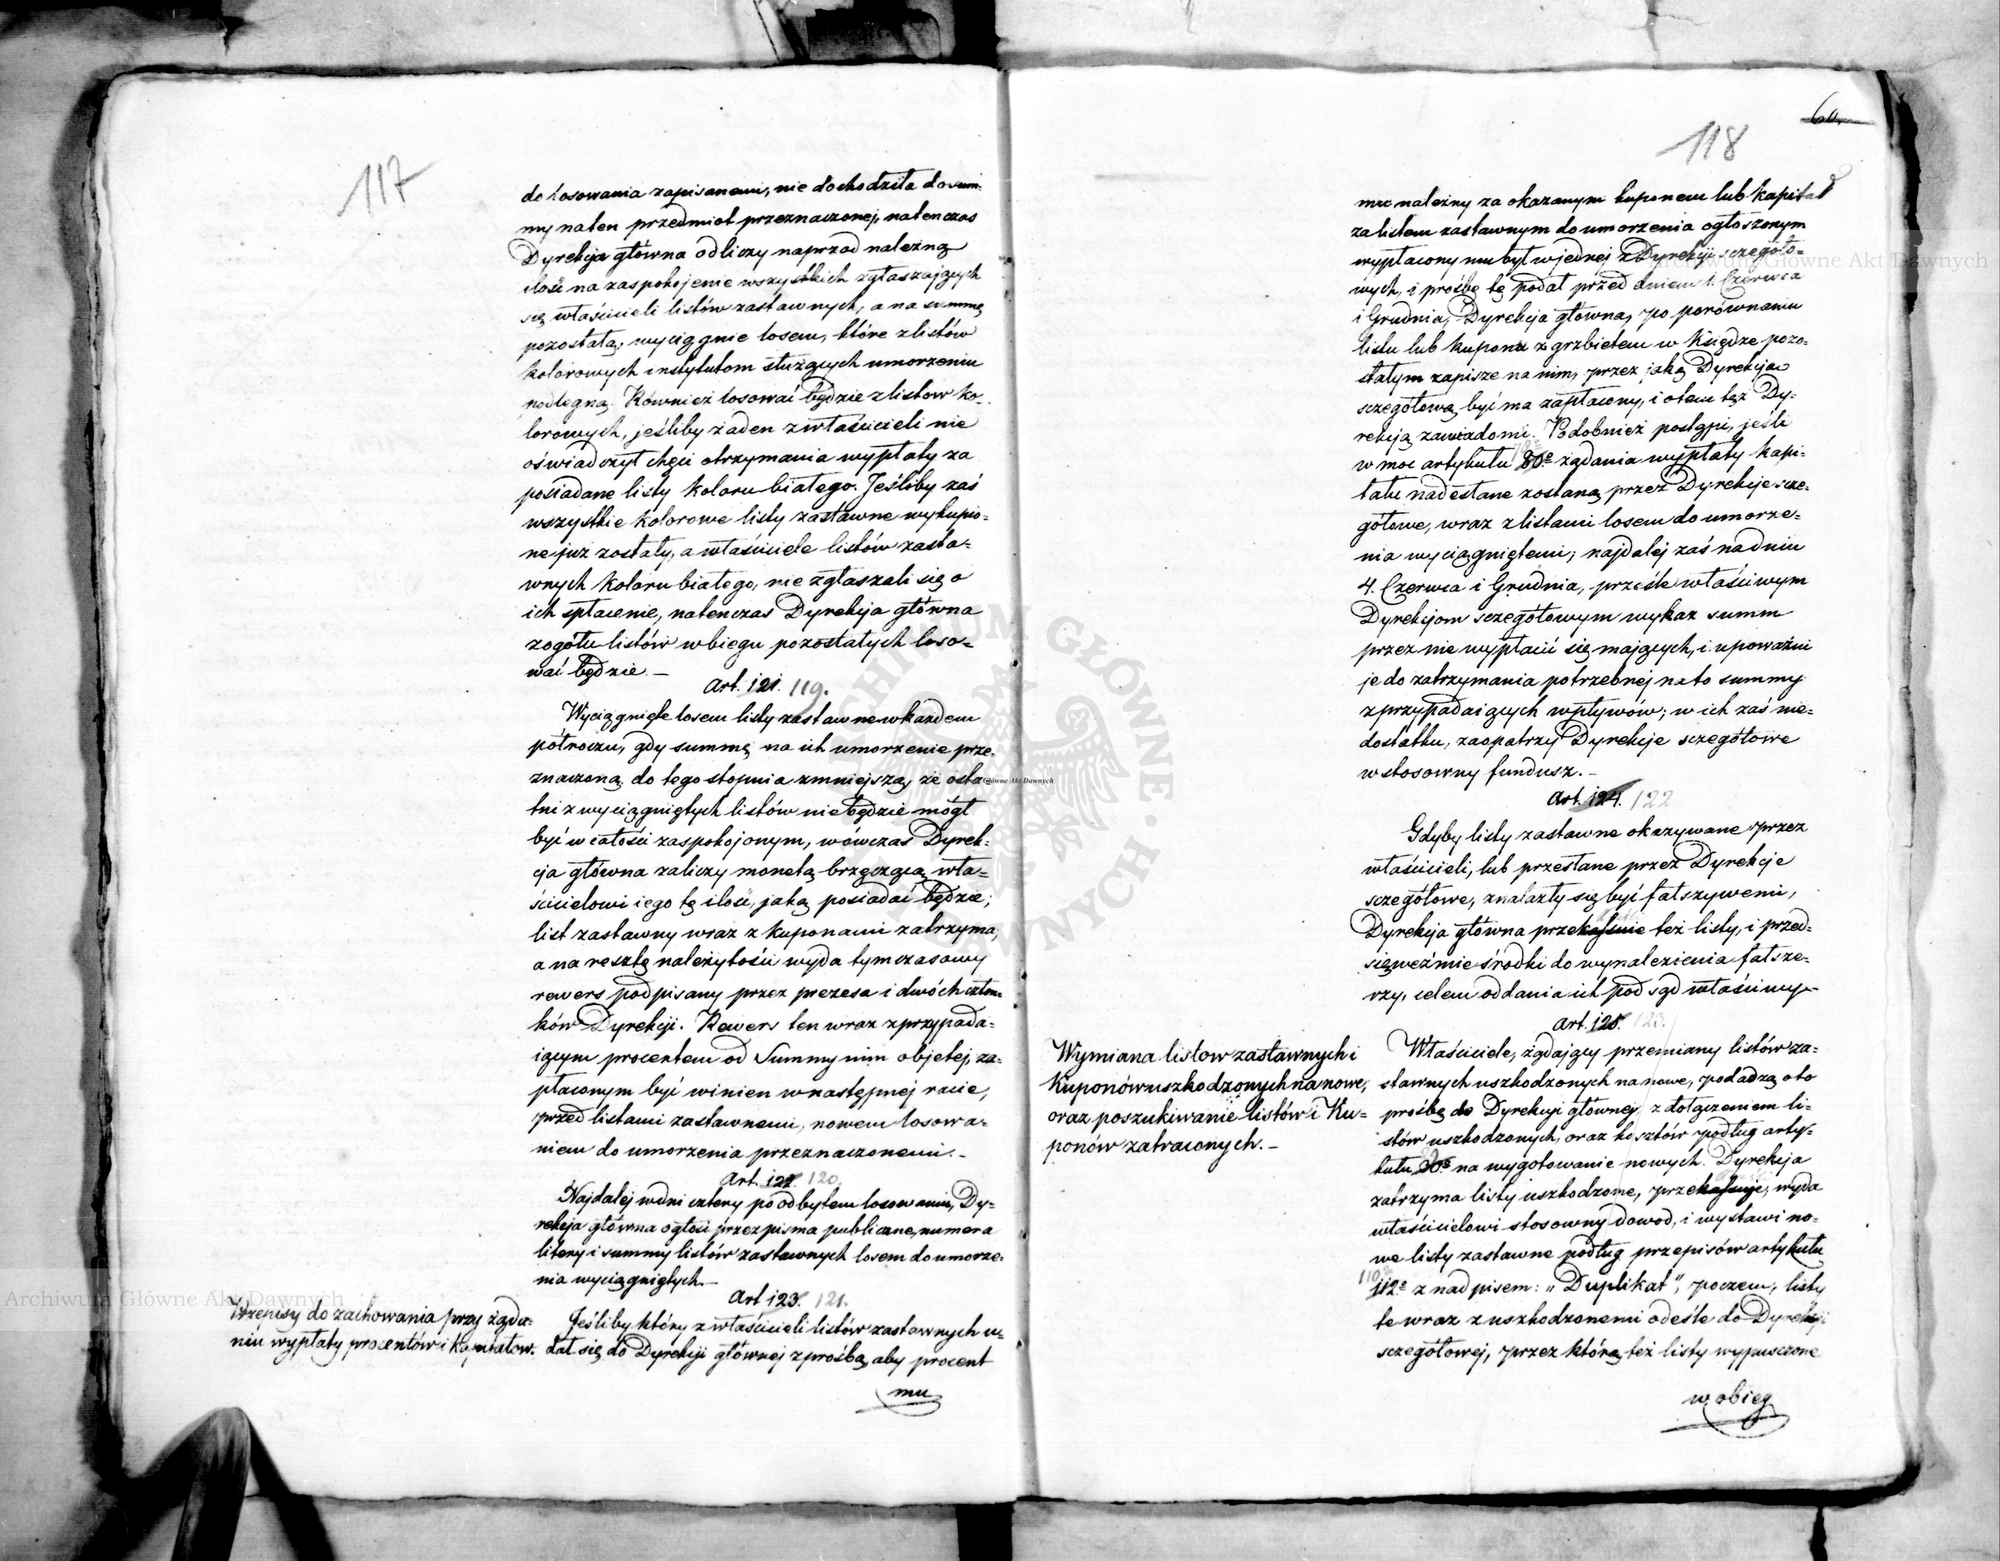 117
do losowania zapisanemi, nie dochodziła do sum-
my na ten przedmiot przeznaczonej, natenczas
Dyrekcja główna odliczy naprzod należną
ilość na zaspokojenie wszystkich zgłaszających
się właścicieli listów zastawnych, a na summę
pozostałą, wyciągnie losem, które z listów
kolorowych instytutom służących umorzeniu
podlegną. Również losować będzie z listow ko-
lorowych, jeśliby żaden z właścicieli nie
oświadczył chęci otrzymania wypłaty za
posiadane listy koloru białego. Jeśliby zaś
wszystkie kolorowe listy zastawne wykupio-
ne już zostały, a właściciele listów zasta-
wnych koloru białego, nie zgłaszali się o
ich spłacenie, natenczas Dyrekcja główna
z ogółu listów w biegu pozostałych loso-
wać będzie. —
Art. 121. 119.
Wyciągnięte losem listy zastawne w każdem
półroczu, gdy summę na ich umorzenie prze-
znaczoną do tego stopnia zmniejszą, że osta-
tni z wyciągniętych listów nie będzie mógł
być w całości zaspokojonym, wówczas Dyrek-
cja główna zaliczy monetą brzęczącą wła-
ścicielowi iego tę ilość, jaką posiadać będzie;
list zastawny wraz z kuponami zatrzyma,
a na resztę należytości wyda tymczasowy
rewers podpisany przez prezesa i dwóch człon-
ków Dyrekcji. Rewers ten wraz z przypada-
iącym procentem od Summy nim objętej, za-
płaconym być winien w następnej racie,
przed listami zastawnemi, nowem losowa-
niem do umorzenia przeznaczonemi. -
Art. 122. 120.
Najdalej w dni cztery po odbytem losowaniu, Dy-
rekcja główna ogłosi przez pisma publiczne, numera
litery i summy listów zastawnych losem do umorze-
nia wyciągniętych. —
Art 123. 121.
Przepisy do zachowania przy żąda-
niu wypłaty procentów i kapitałow.
Jeśliby który z właścicieli listów zastawnych u-
dał się do Dyrekcji głównej z prośbą, aby procent
mu
60.
118
mu należny za okazanym kuponem lub kapitał
za listem zastawnym do umorzenia ogłoszonym
wypłacony mu był w jednej z Dyrekcji sczegóło-
wych, i prośbę tę podał przed dniem 1. Czerwca
i Grudnia, Dyrekcja główna, po porównaniu
listu lub kuponu z grzbietem w Księdze pozo-
stałym zapisze na nim, przez jaką Dyrekcja
sczegółową być ma zapłacony, i otem też Dy-
rekcją zawiadomi. Podobnież postąpi, jeśli
w moc artykułu 80.º żądania wypłaty kapi-
tału nadesłane zostaną przez Dyrekcje scze-
gółowe, wraz z listami losem do umorze-
nia wyciągniętemi; najdalej zaś na dniu
4. Czerwca i Grudnia, prześle właściwym
Dyrekcjom sczegółowym wykaz summ
przez nie wypłacić się mających, i upoważni
je do zatrzymania potrzebnej na to summy
z przypadaiących wpływów; w ich zaś nie-
dostatku, zaopatrzy Dyrekcje sczegółowe
w stosowny fundusz. -
Art. 124. 122
Gdyby listy zastawne okazywane przez
właścicieli, lub przesłane przez Dyrekcje
sczegółowe, znalazły się być fałszywemi,
Dyrekcja główna przekasuie też listy, i przed-
sięweźmie środki do wynalezienia fałsze-
rzy, celem oddania ich pod sąd właściwy.
Art. 125. 123.
Wymiana listow zastawnych i
Kuponów uszkodzonych na nowe,
oraz poszukiwanie listów i Ku-
ponów zatraconych. -
Właściciele, żądający przemiany listów za-
stawnych uszkodzonych na nowe, podadzą oto
prośbę do Dyrekcyi głównej z dołączeniem li-
stów uszkodzonych, oraz kosztów podług arty-
kułu na wygotowanie nowych. Dyrekcja
zatrzyma listy uszkodzone, przekasuje, wyda
właścicielowi stosowny dowod, i wystawi no-
we listy zastawne podług przepisów artykułu
110 112.º z nadpisem: „Duplikat", poczem, listy
te wraz z uszkodzonemi odeśle do Dyrekcji
sczegółowej, przez którą też listy wypusczone
w obieg
Archiwum Główne Akt Dawnych